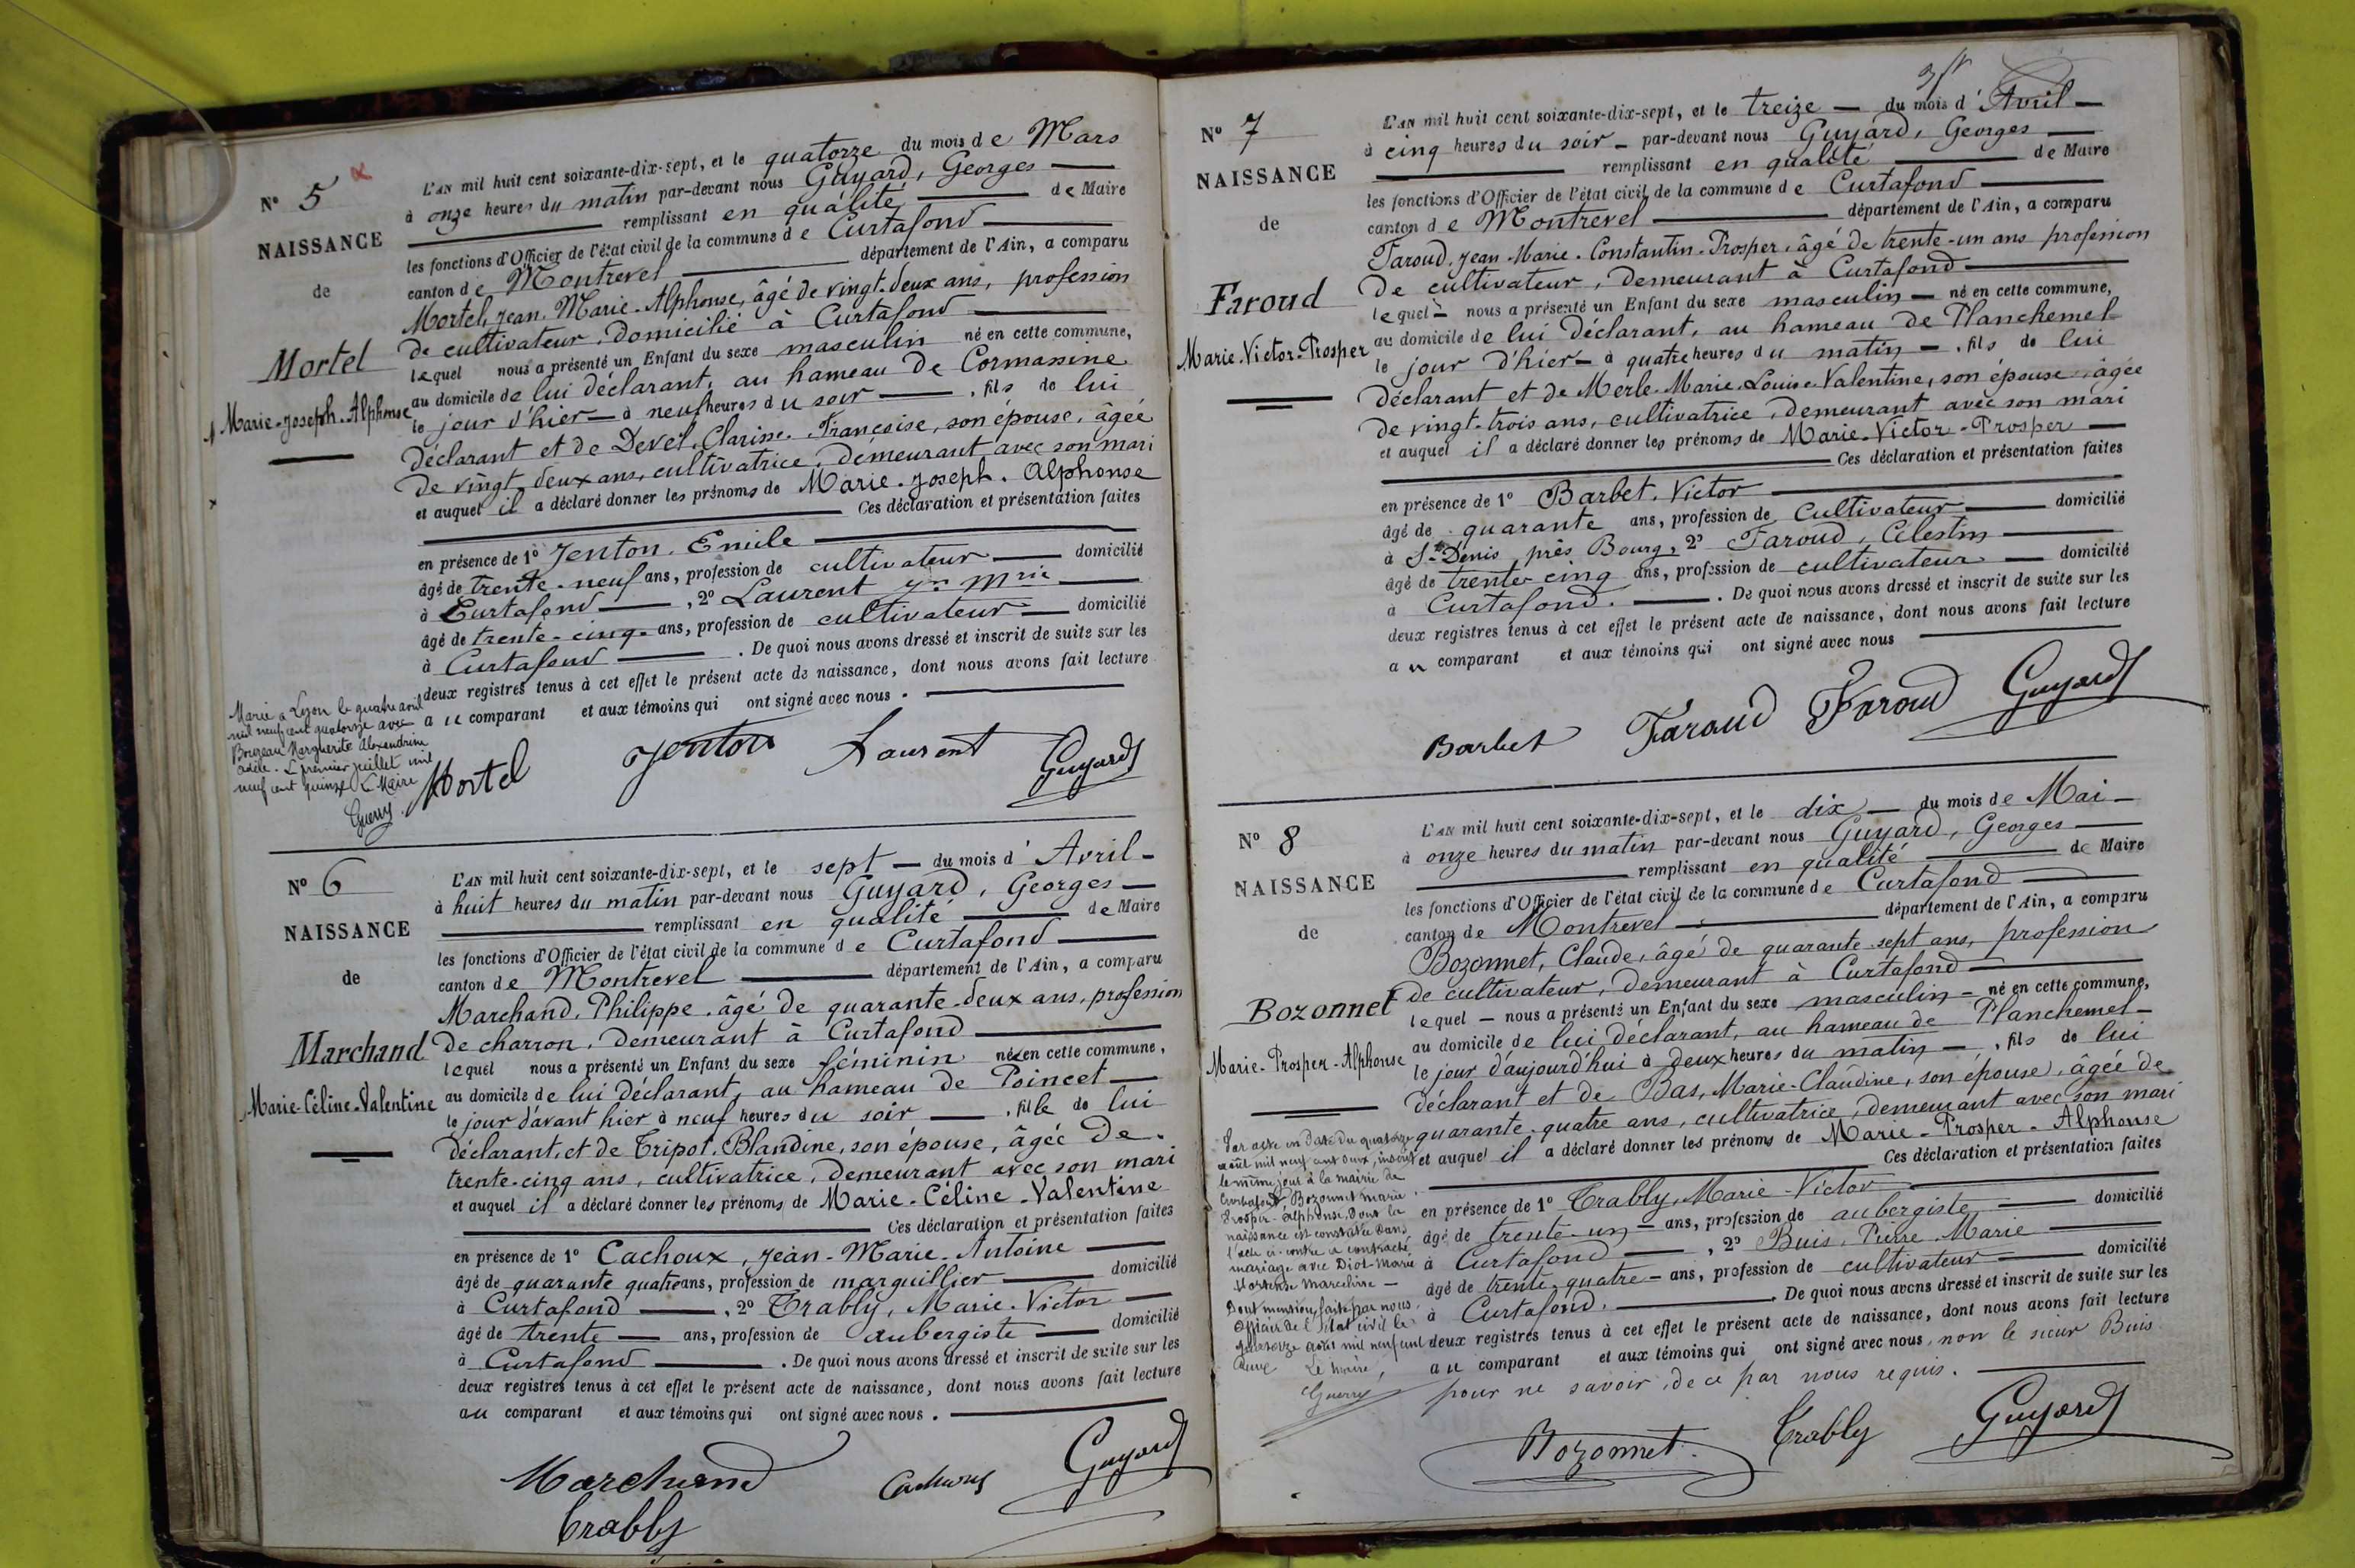 N° 5
NAISSANCE
de
Mortel
Marie-Joseph-Alphonse
L'AN mil huit cent soixante-dix-sept, et le quatorze du mois de Mars
à onze heures du matin par-devant nous Guyard, Georges
remplissant en qualité de Maire
les fonctions d'Officier de l'état civil de la commune de Curtafond
canton de Montrevel département de l'Ain, a comparu
Mortel, Jean-Marie-Alphonse, âgé de vingt-deux ans, profession
de cultivateur, domicilié à Curtafond
lequel nous a présenté un Enfant du sexe masculin né en cette commune,
au domicile de lui déclarant, au hameau de Cormassine
le jour d'hier à neuf heures du soir, fils de lui
déclarant et de Devel, Clarisse-Françoise, son épouse, âgée
de vingt-deux ans, cultivatrice, demeurant avec son mari
et auquel il a déclaré donner les prénoms de Marie-Joseph-Alphonse
Ces déclaration et présentation faites
en présence de 1° Jenton, Emile
âgé de trente-neuf ans, profession de cultivateur domicilié
à Curtafond, 2° Laurent Jn Mrie
âgé de trente-cinq ans, profession de cultivateur domicilié
à Curtafond. De quoi nous avons dressé et inscrit de suite sur les
deux registres tenus à cet effet le présent acte de naissance, dont nous avons fait lecture
au comparant et aux témoins qui ont signé avec nous.
Marié à Lyon le quatre août
mil neuf cent quatorze avec
Marguerite Alexandrine
Adèle. Le premier juillet mil
neuf cent quinze Le Maire
Guerry
Mortel Jenton Laurent Guyard
N° 6
NAISSANCE
de
Marchand
Marie-Céline-Valentine
L'AN mil huit cent soixante-dix-sept, et le sept du mois d'Avril
à huit heures du matin par-devant nous Guyard, Georges
remplissant en qualité de Maire
les fonctions d'Officier de l'état civil de la commune de Curtafond
canton de Montrevel département de l'Ain, a comparu
Marchand, Philippe, âgé de quarante-deux ans, profession
de charron, demeurant à Curtafond
lequel nous a présenté un Enfant du sexe féminin née en cette commune,
au domicile de lui déclarant, au hameau de Poincet
le jour d'avant hier à neuf heures du soir, fille de lui
déclarant, et de Tripot, Blandine, son épouse, âgée de
trente-cinq ans, cultivatrice, demeurant avec son mari
et auquel il a déclaré donner les prénoms de Marie-Céline-Valentine
Ces déclaration et présentation faites
en présence de 1° Cachoux, Jean-Marie-Antoine
âgé de quarante quatre ans, profession de marguillier domicilié
à Curtafond, 2° Trably, Marie-Victor
âgé de trente ans, profession de aubergiste domicilié
à Curtafond. De quoi nous avons dressé et inscrit de suite sur les
deux registres tenus à cet effet le présent acte de naissance, dont nous avons fait lecture
au comparant et aux témoins qui ont signé avec nous.
Marchand Cachoux Guyard
Trably
N° 7
NAISSANCE
de
Faroud
Marie-Victor-Prosper
L'AN mil huit cent soixante-dix-sept, et le treize du mois d'Avril
à cinq heures du soir par-devant nous Guyard, Georges
remplissant en qualité de Maire
les fonctions d'Officier de l'état civil de la commune de Curtafond
canton de Montrevel département de l'Ain, a comparu
Faroud, Jean-Marie-Constantin-Prosper, âgé de trente-un ans profession
de cultivateur, demeurant à Curtafond
lequel nous a présenté un Enfant du sexe masculin né en cette commune,
au domicile de lui déclarant, au hameau de Planchemel
le jour d'hier à quatre heures du matin, fils de lui
déclarant et de Merle-Marie-Louise-Valentine, son épouse, âgée
de vingt-trois ans, cultivatrice, demeurant avec son mari
et auquel il a déclaré donner les prénoms de Marie-Victor-Prosper
Ces déclaration et présentation faites
en présence de 1° Barbet, Victor
âgé de quarante ans, profession de Cultivateur domicilié
à St Denis, près Bourg, 2° Faroud, Célestin
âgé de trente-cinq ans, profession de cultivateur domicilié
à Curtafond. De quoi nous avons dressé et inscrit de suite sur les
deux registres tenus à cet effet le présent acte de naissance, dont nous avons fait lecture
au comparant et aux témoins qui ont signé avec nous
Barbet Faroud Faroud Guyard
N° 8
NAISSANCE
de
Bozonnet
Marie-Prosper-Alphonse
L'AN mil huit cent soixante-dix-sept, et le dix du mois de Mai
à onze heures du matin par-devant nous Guyard, Georges
remplissant en qualité de Maire
les fonctions d'Officier de l'état civil de la commune de Curtafond
canton de Montrevel département de l'Ain, a comparu
Bozonnet, Claude, âgé de quarante-sept ans, profession
de cultivateur, demeurant à Curtafond
lequel nous a présenté un Enfant du sexe masculin né en cette commune,
au domicile de lui déclarant, au hameau de Planchemel
le jour d'aujourd'hui à deux heures du matin, fils de lui
déclarant et de Bas, Marie-Claudine, son épouse, âgée de
quarante-quatre ans, cultivatrice, demeurant avec son mari
et auquel il a déclaré donner les prénoms de Marie-Prosper-Alphonse
Ces déclaration et présentation faites
en présence de 1° Trably, Marie-Victor
âgé de trente-un ans, profession de aubergiste domicilié
à Curtafond, 2° Buis, Pierre-Marie
âgé de trente-quatre ans, profession de cultivateur domicilié
à Curtafond. De quoi nous avons dressé et inscrit de suite sur les
deux registres tenus à cet effet le présent acte de naissance, dont nous avons fait lecture
au comparant et aux témoins qui ont signé avec nous, non le sieur Buis
pour ne savoir, de ce par nous requis.
Par acte en date du quatorze
août mil neuf cent onze, inscrit
le même jour à la mairie de
Curtafond Bozonnet Marie
Prosper-Alphonse, dont la
naissance est constatée dans
l'acte ci-contre a contracté
mariage avec Diot-Marie
Hortense Marceline
Dont mention faite par nous
Officier de l'état civil le
quatorze août mil neuf cent
Le Maire,
Guerry
Bozonnet Trably Guyard